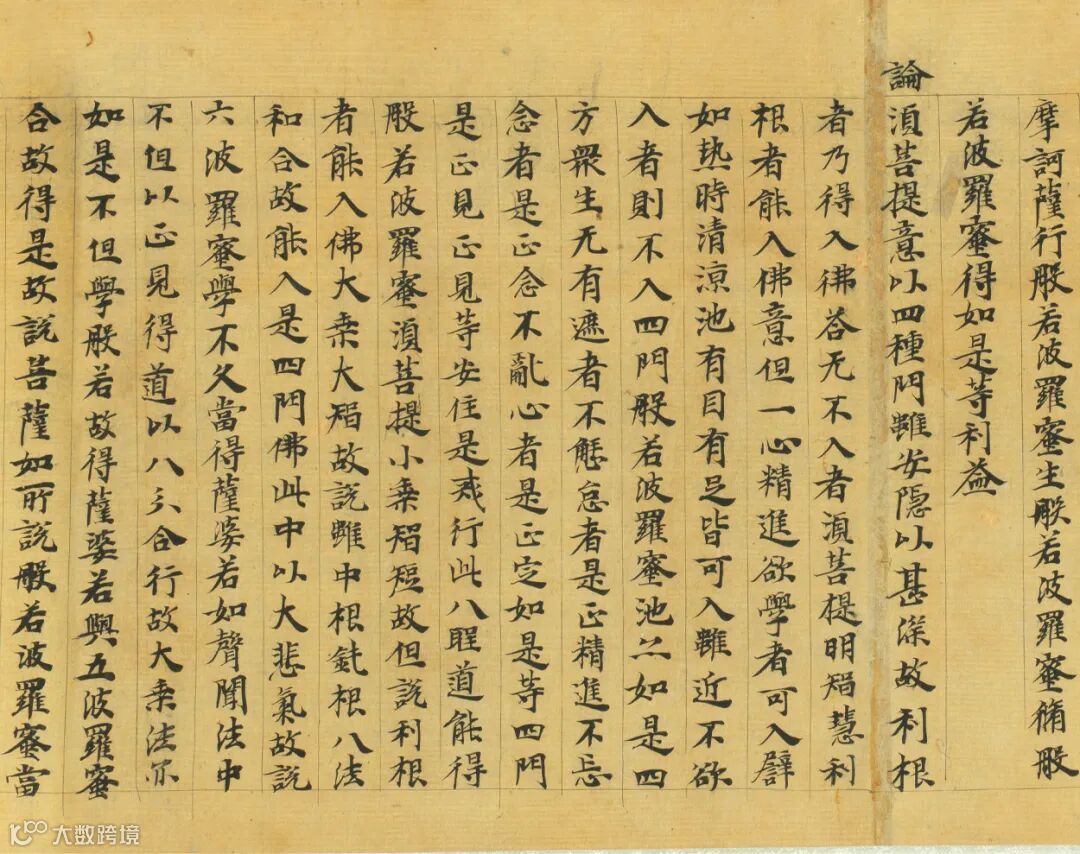 摩訶薩行般若波羅蜜生般若波羅蜜脩般
若波羅蜜得如是等利益
論
湏菩提意以四種門雖安隱以甚深故利根
者乃得入彿荅无不入者湏菩提明㽽慧利
根者能入佛意但一心精進欲學者可入辟
如热時清涼池有目有足皆可入雖近不欲
入者則不入四門般若波羅蜜池亦如是四
方衆生无有遮者不懈怠者是正精進不忘
念者是正念不亂心者是正定如是等四門
是正見正見等安住是戒行此八聖道能得
般若波羅蜜湏菩提小乗㽽短故但說利根
者能入佛大乗大㽽故說雖中根鈍根八法
和合故能入是四門佛此中以大悲氣故說
六波羅蜜學不久當得薩婆若如聲聞法中
不但以正見得道以八分合行故大乗法亦
如是不但學般若故得薩婆若與五波羅蜜
合故得是故說菩薩如所說般若波羅蜜當
大数跨境